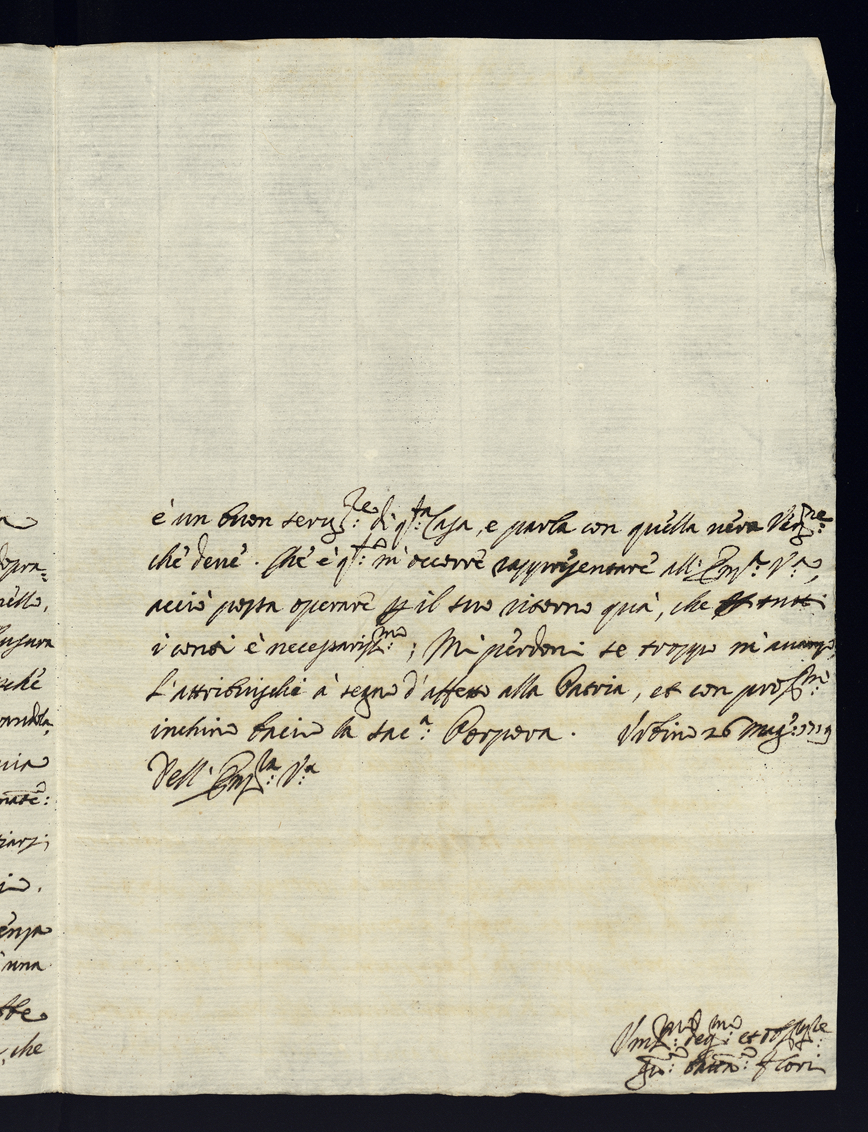 a
è un buon servi:re di q:ta Casa, e parla con quella vera
opra=
che deve. Che è q:to m'occorre rappresentare all' Em:za V:a,
nello,
acciò possa operare il suo ritorno quà, che tutti
i conti è necessariss:mo; Mi perdoni se troppo m'avanzo,
sché
L'attribuische à segno d'affetto alla Patria, et con prof:mo
inchino bacio la sac:a Porpora. Urbino 26 Mag:o 1719
Dell' Em:za V:a
enza
una
che
Um:mo dev:mo et oss:re
Gio: Batta: Flori